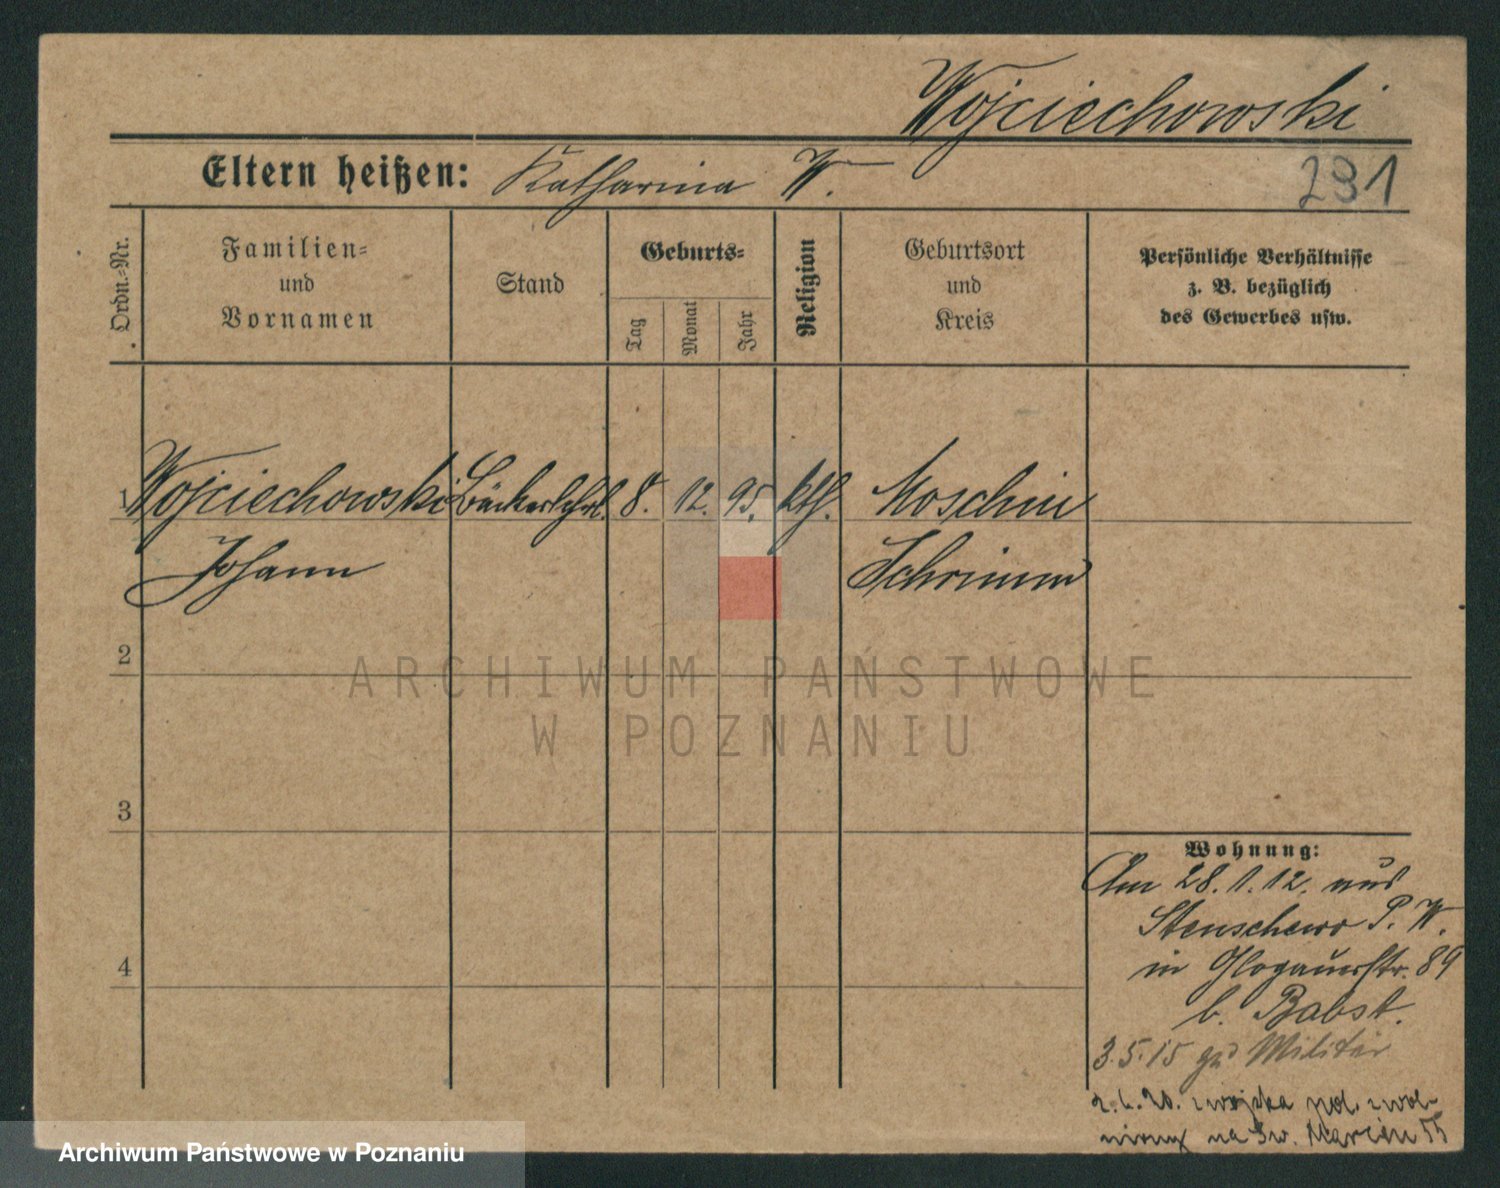 Wojciechowski
Eltern heißen: Katharina W.
291
Ordn.-Nr.
Familien-
und
Vornamen
Stand
Geburts-
Tag
Monat
Jahr
Religion
Geburtsort
und
Kreis
Persönliche Verhältnisse
z. B. bezüglich
des Gewerbes usw.
1 Wojciechowski Bäckerlehrl. 8. 12. 95. kth. Moschin
Johann Schrimm
2
3
4
ARCHIWUM PAŃSTWOWE
W POZNANIU
Wohnung:
Am 28.1.12. aus
Stenschewo P. W.
in Glogauerstr. 89
b. Babst.
3.5.15 zum Militär
z wojska pol. zwol-
niony na Św. Marcin 55
Archiwum Państwowe w Poznaniu